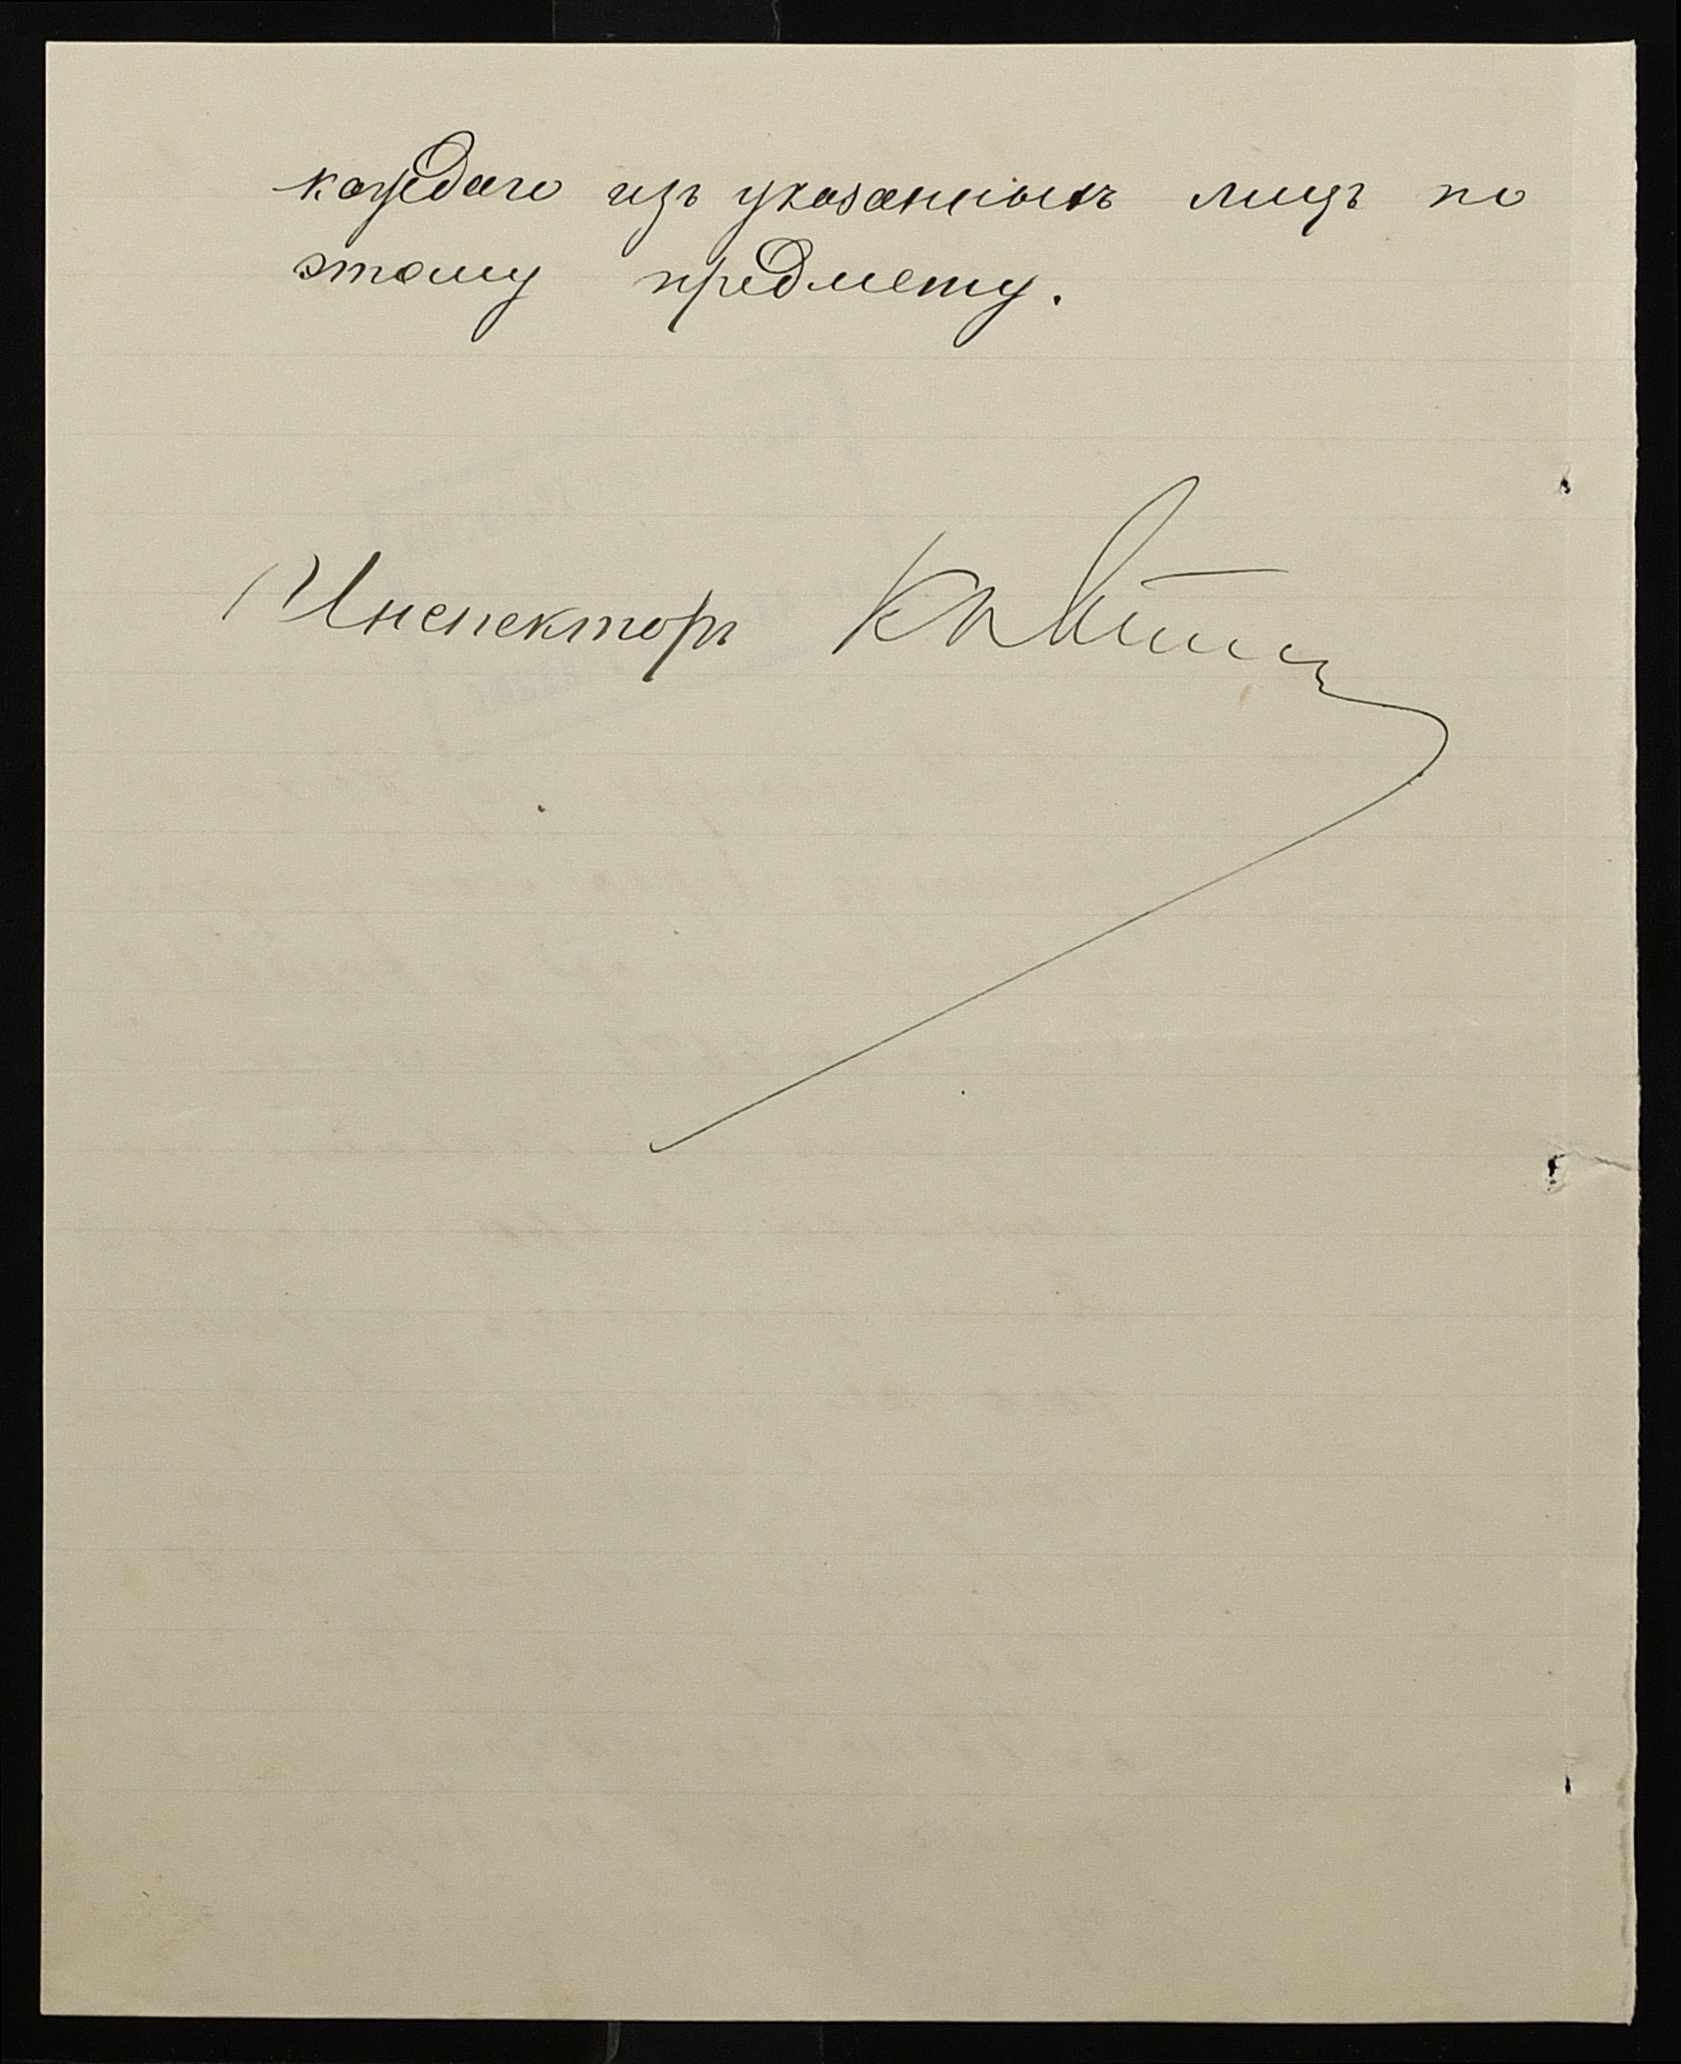 каждаго изъ указанныхъ лицъ по
этому предмету.
Инспекторъ